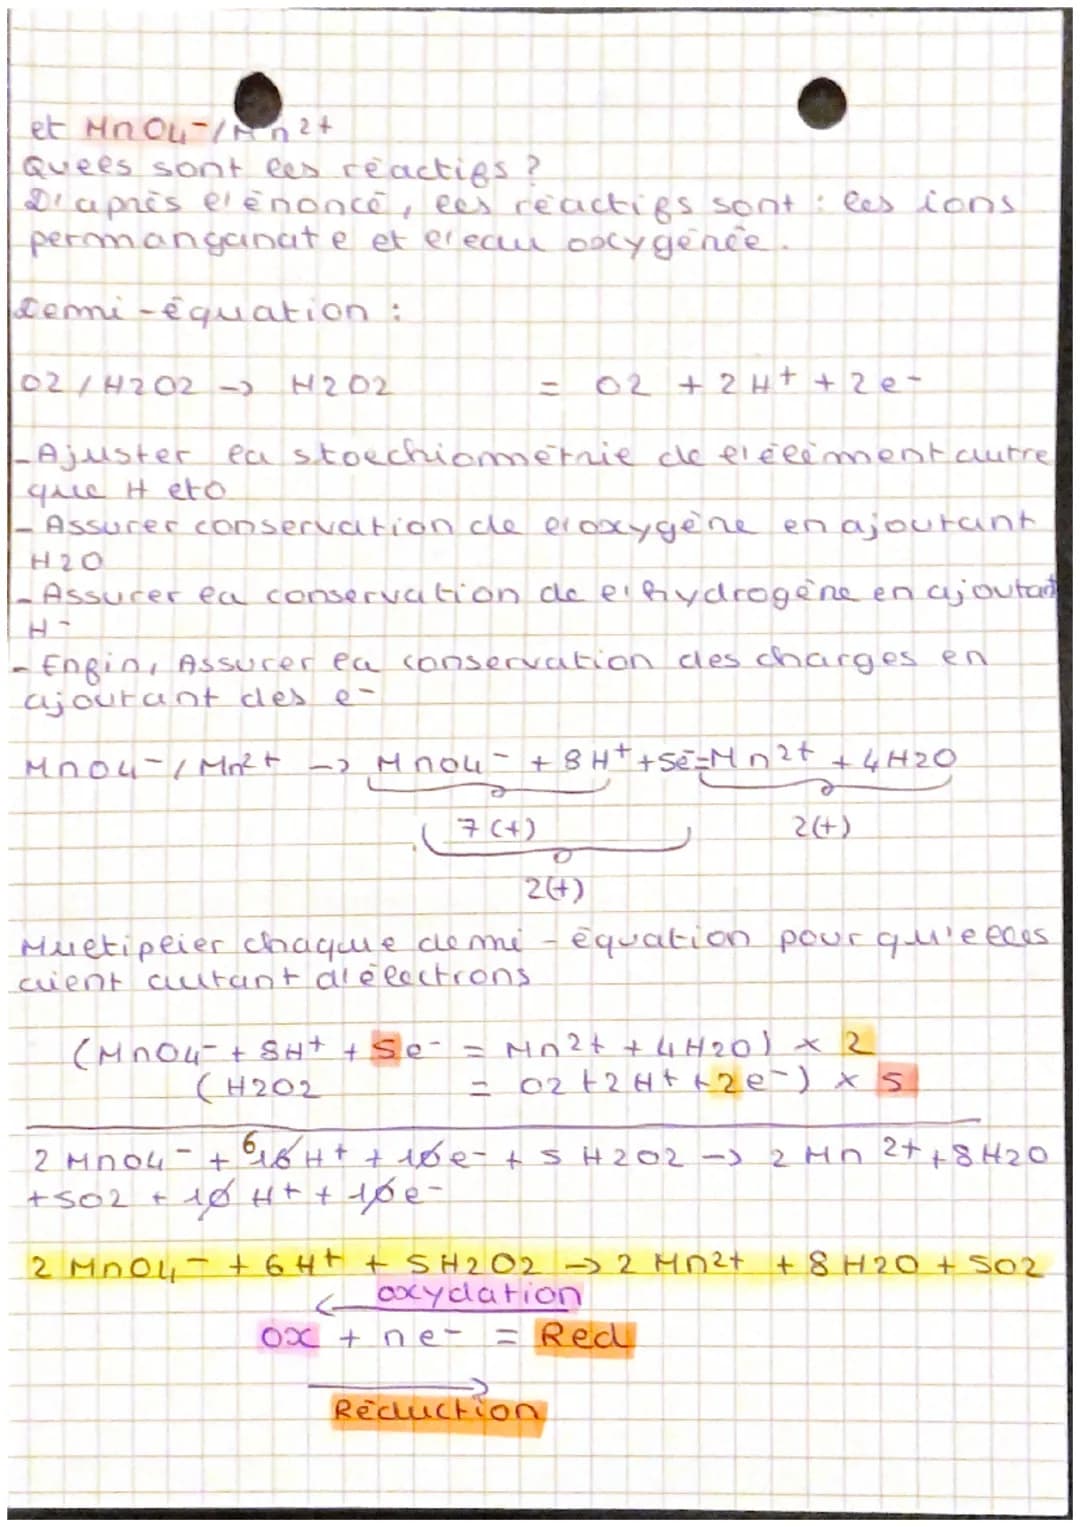 et MnO4-/Mn2+
Quels sont les réactifs ?
D'après l'énoncé, les réactifs sont : les ions
permanganate et l'eau oxygénée.
Demi-équation :
O2/H2O2 -> H2O2 = O2 + 2H+ + 2e-
- Ajuster la stoechiométrie de l'élément autre
que H et O
- Assurer conservation de l'oxygène en ajoutant
H2O
- Assurer la conservation de l'hydrogène en ajoutant
H-
- Enfin, Assurer la conservation des charges en
ajoutant des e-
MnO4-/Mn2+ -> MnO4- + 8H+ + 5e- = Mn2+ + 4H2O
7(+) 2(+)
2(+)
Multiplier chaque demi-équation pour qu'elles
aient autant d'électrons
(MnO4- + 8H+ + 5e- = Mn2+ + 4H2O) x 2
(H2O2 = O2 + 2H+ + 2e-) x 5
2 MnO4- + 6 16H+ + 10e- + 5 H2O2 -> 2 Mn2+ + 8H2O
+ 5O2 + 10 H+ + 10e-
2 MnO4- + 6H+ + 5H2O2 -> 2 Mn2+ + 8 H2O + 5O2
oxydation
ox + ne- = Red
Réduction